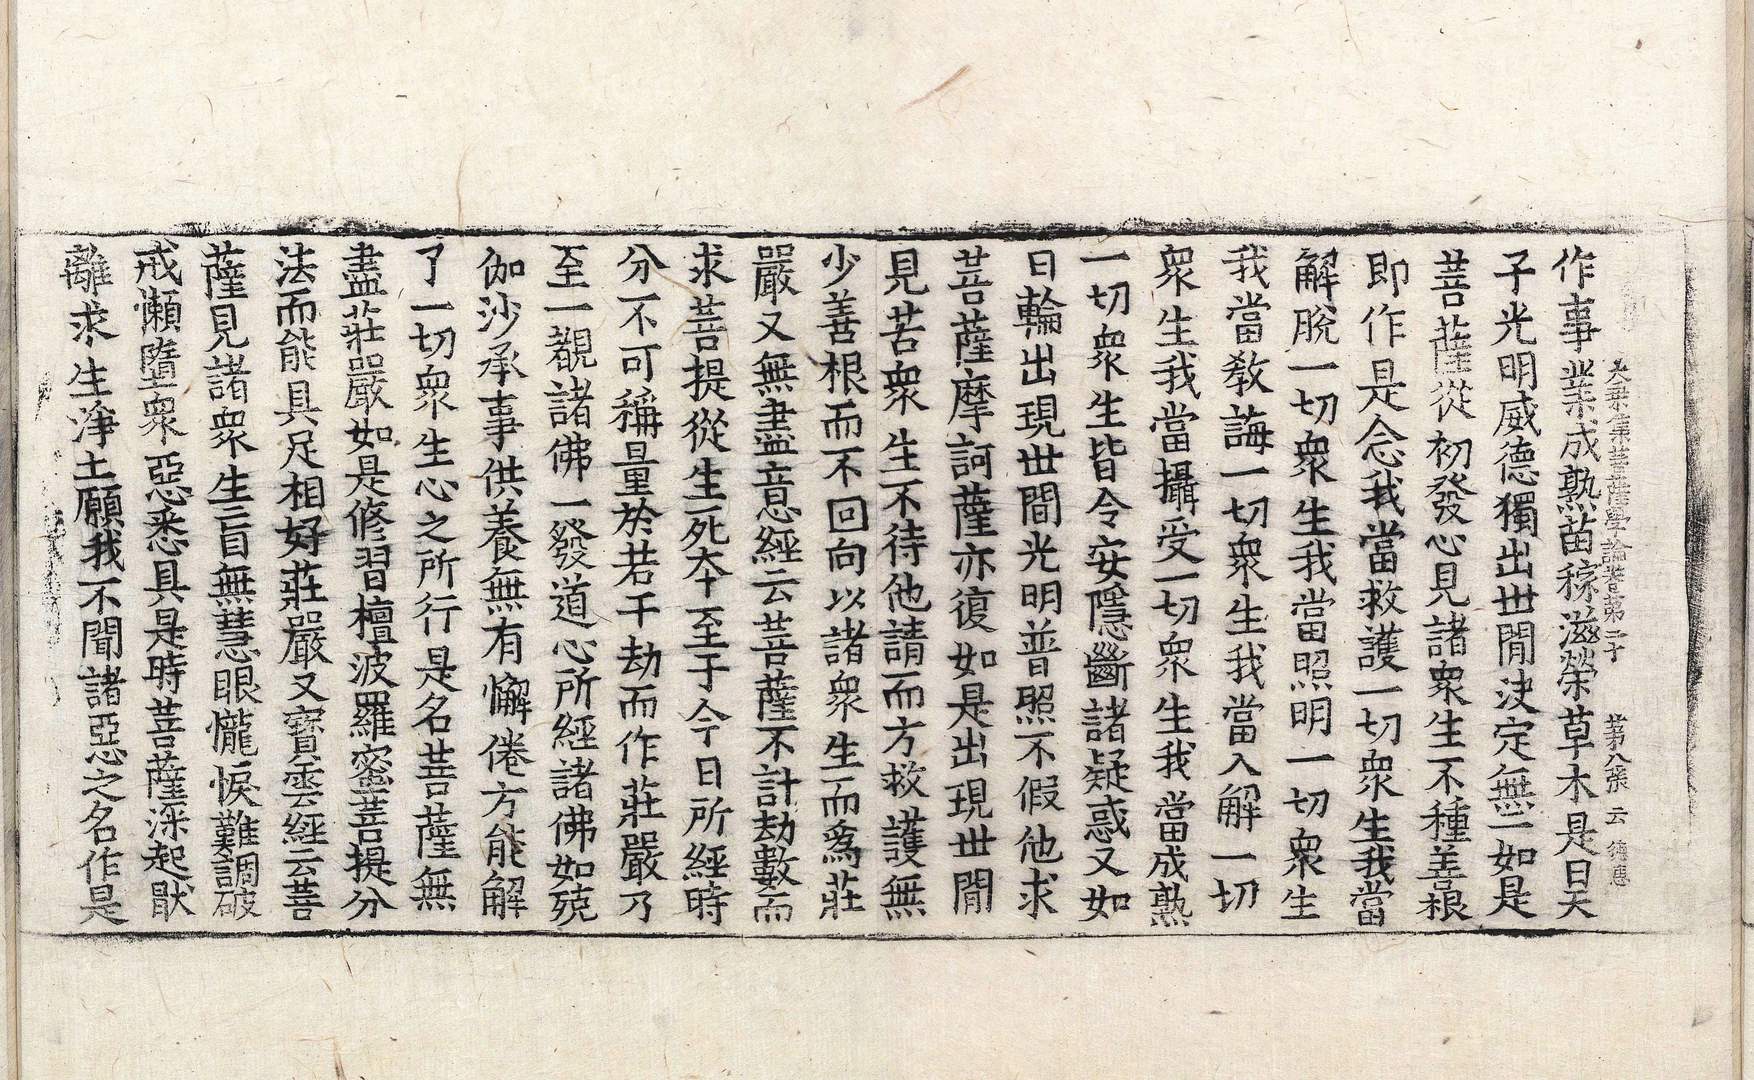 大乘集菩薩學論卷第二十　第八張　云　德惠
作事業成熟苗稼滋榮草木是日天
子光明威德獨出世間決定無二如是
菩薩從初發心見諸衆生不種善根
即作是念我當救護一切衆生我當
解脫一切衆生我當照明一切衆生
我當教誨一切衆生我當入解一切
衆生我當攝受一切衆生我當成熟
一切衆生皆令安隱斷諸疑惑又如
日輪出現世間光明普照不假他求
菩薩摩訶薩亦復如是出現世間
見苦衆生不待他請而方救護無
少善根而不回向以諸衆生而爲莊
嚴又無盡意經云菩薩不計劫數而
求菩提從生死本至于今日所經時
分不可稱量於若干劫而作莊嚴乃
至一覩諸佛一發道心所經諸佛如殑
伽沙承事供養無有懈倦方能解
了一切衆生心之所行是名菩薩無
盡莊嚴如是修習檀波羅蜜菩提分
法而能具足相好莊嚴又寶雲經云菩
薩見諸衆生盲無慧眼𢤱悷難調破
戒懶墮衆惡悉具是時菩薩深起厭
離求生淨土願我不聞諸惡之名作是